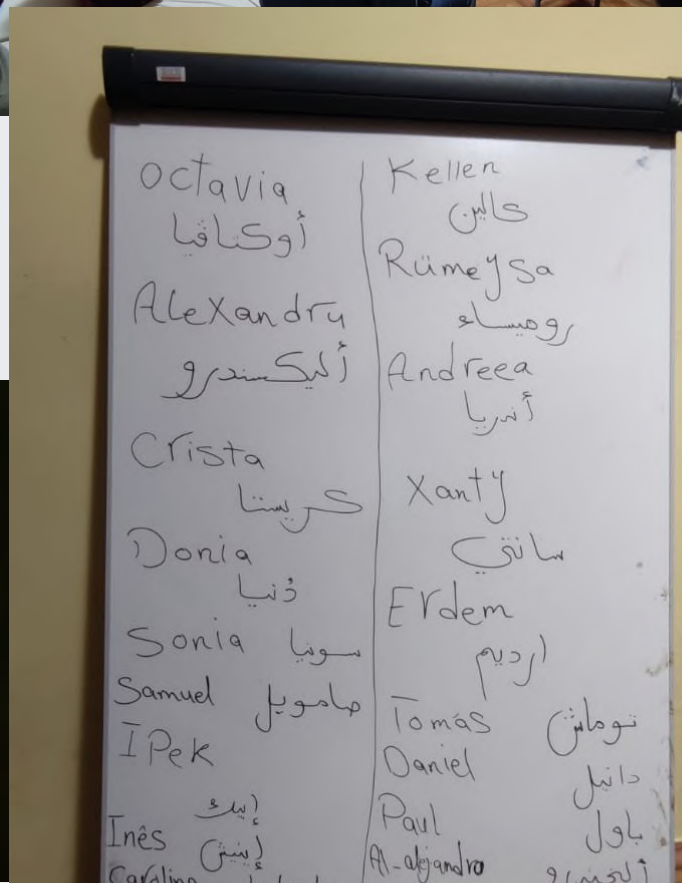 Octavia
أوكتاڤيا
Alexandru
أليكسندرو
Crista
كريستا
Donia
دُنيا
Sonia سونيا
Samuel صامويل
IPek
إيبك
Inês إينيش
Carolina
Kellen
كالين
Rümeysa
روميساء
Andreea
أندريا
Xanty
سانتي
Erdem
ارديم
Tomás توماش
Daniel دانيل
Paul باول
Al-alejandro